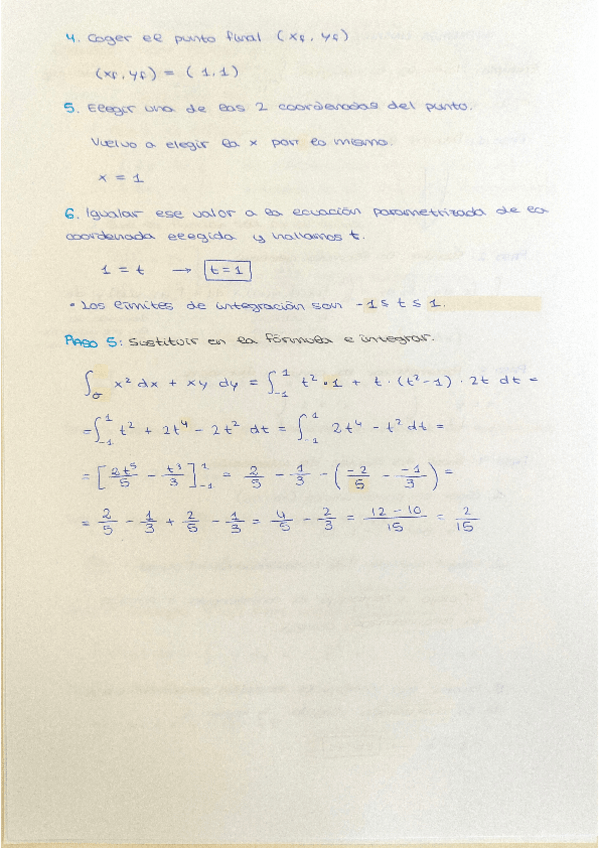 4. Coger el punto final (xf, yf)
(xf, yf) = (1,1)
5. Elegir una de las 2 coordenadas del punto.
Vuelvo a elegir la x por lo mismo.
x = 1
6. Igualar ese valor a la ecuación parametrizada de la
coordenada elegida y hallamos t.
1 = t → t = 1
• Los límites de integración son -1 ≤ t ≤ 1.
PASO 5: Sustituir en la fórmula e integrar.
∫σ x² dx + xy dy = ∫₋₁¹ t² · 1 + t · (t²-1) · 2t dt =
= ∫₋₁¹ t² + 2t⁴ - 2t² dt = ∫₋₁¹ 2t⁴ - t² dt =
= [2t⁵/5 - t³/3]₋₁¹ = 2/5 - 1/3 - (-2/5 - -1/3) =
= 2/5 - 1/3 + 2/5 - 1/3 = 4/5 - 2/3 = 12-10/15 = 2/15